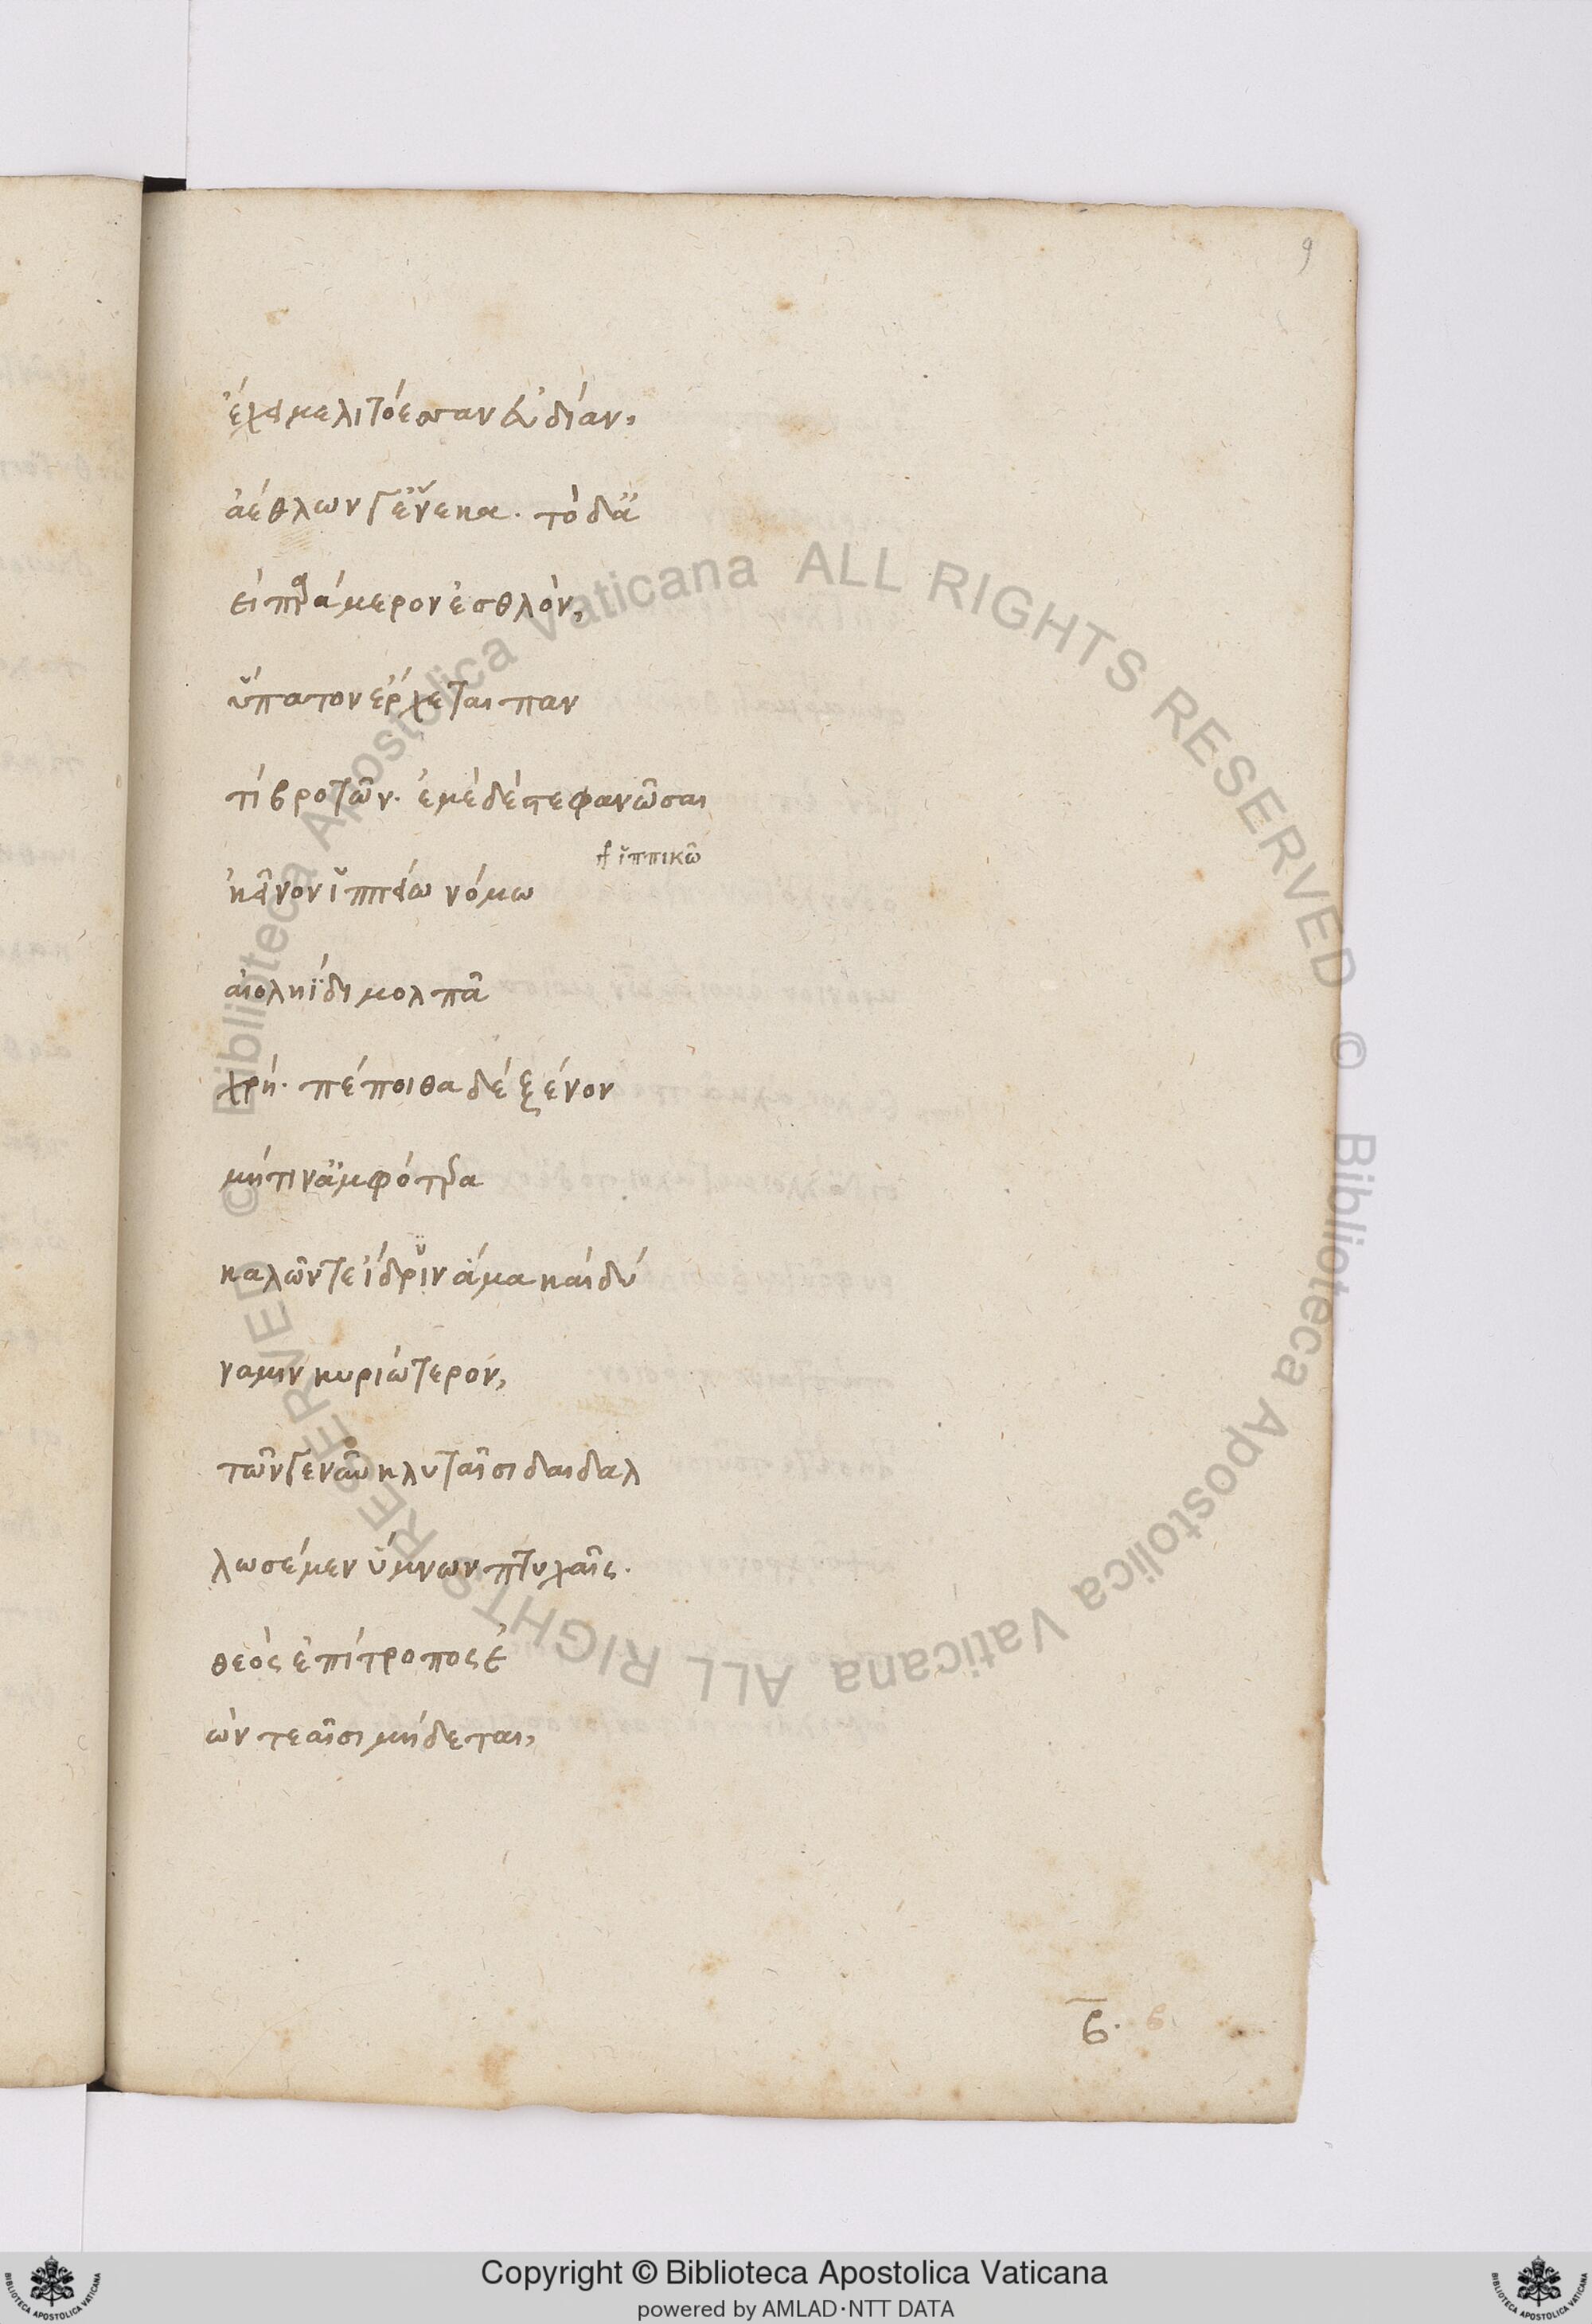 9
ἔχει μελιτόεσσαν εὐδίαν,
ἀέθλων γ' ἕνεκα. τὸ δ' ἀ
εὶ παράμερον ἐσθλὸν,
ὕπατον ἔρχεται παν
τὶ βροτῶν. ἐμὲ δὲ στεφανῶσαι
γρ ἱππικῶ
κεῖνον ἱππείω νόμω
αἰοληΐδι μολπᾶ
χρή. πέποιθα δὲ ξένον
μήτιν' ἀμφότερα
καλῶν τε ἴδριν ἅμα καὶ δύ
ναμιν κυριώτερον,
τῶν γε νῦν κλυταῖσι δαιδαλ
λωσέμεν ὕμνων πτυχαῖς.
θεὸς ἐπίτροπος ἐ
ὼν τεαῖσι μήδεται,
β.
© Biblioteca Apostolica Vaticana ALL RIGHTS RESERVED
© Biblioteca Apostolica Vaticana ALL RIGHTS RESERVED
Copyright © Biblioteca Apostolica Vaticana
powered by AMLAD·NTT DATA
BIBLIOTECA APOSTOLICA VATICANA
BIBLIOTECA APOSTOLICA VATICANA